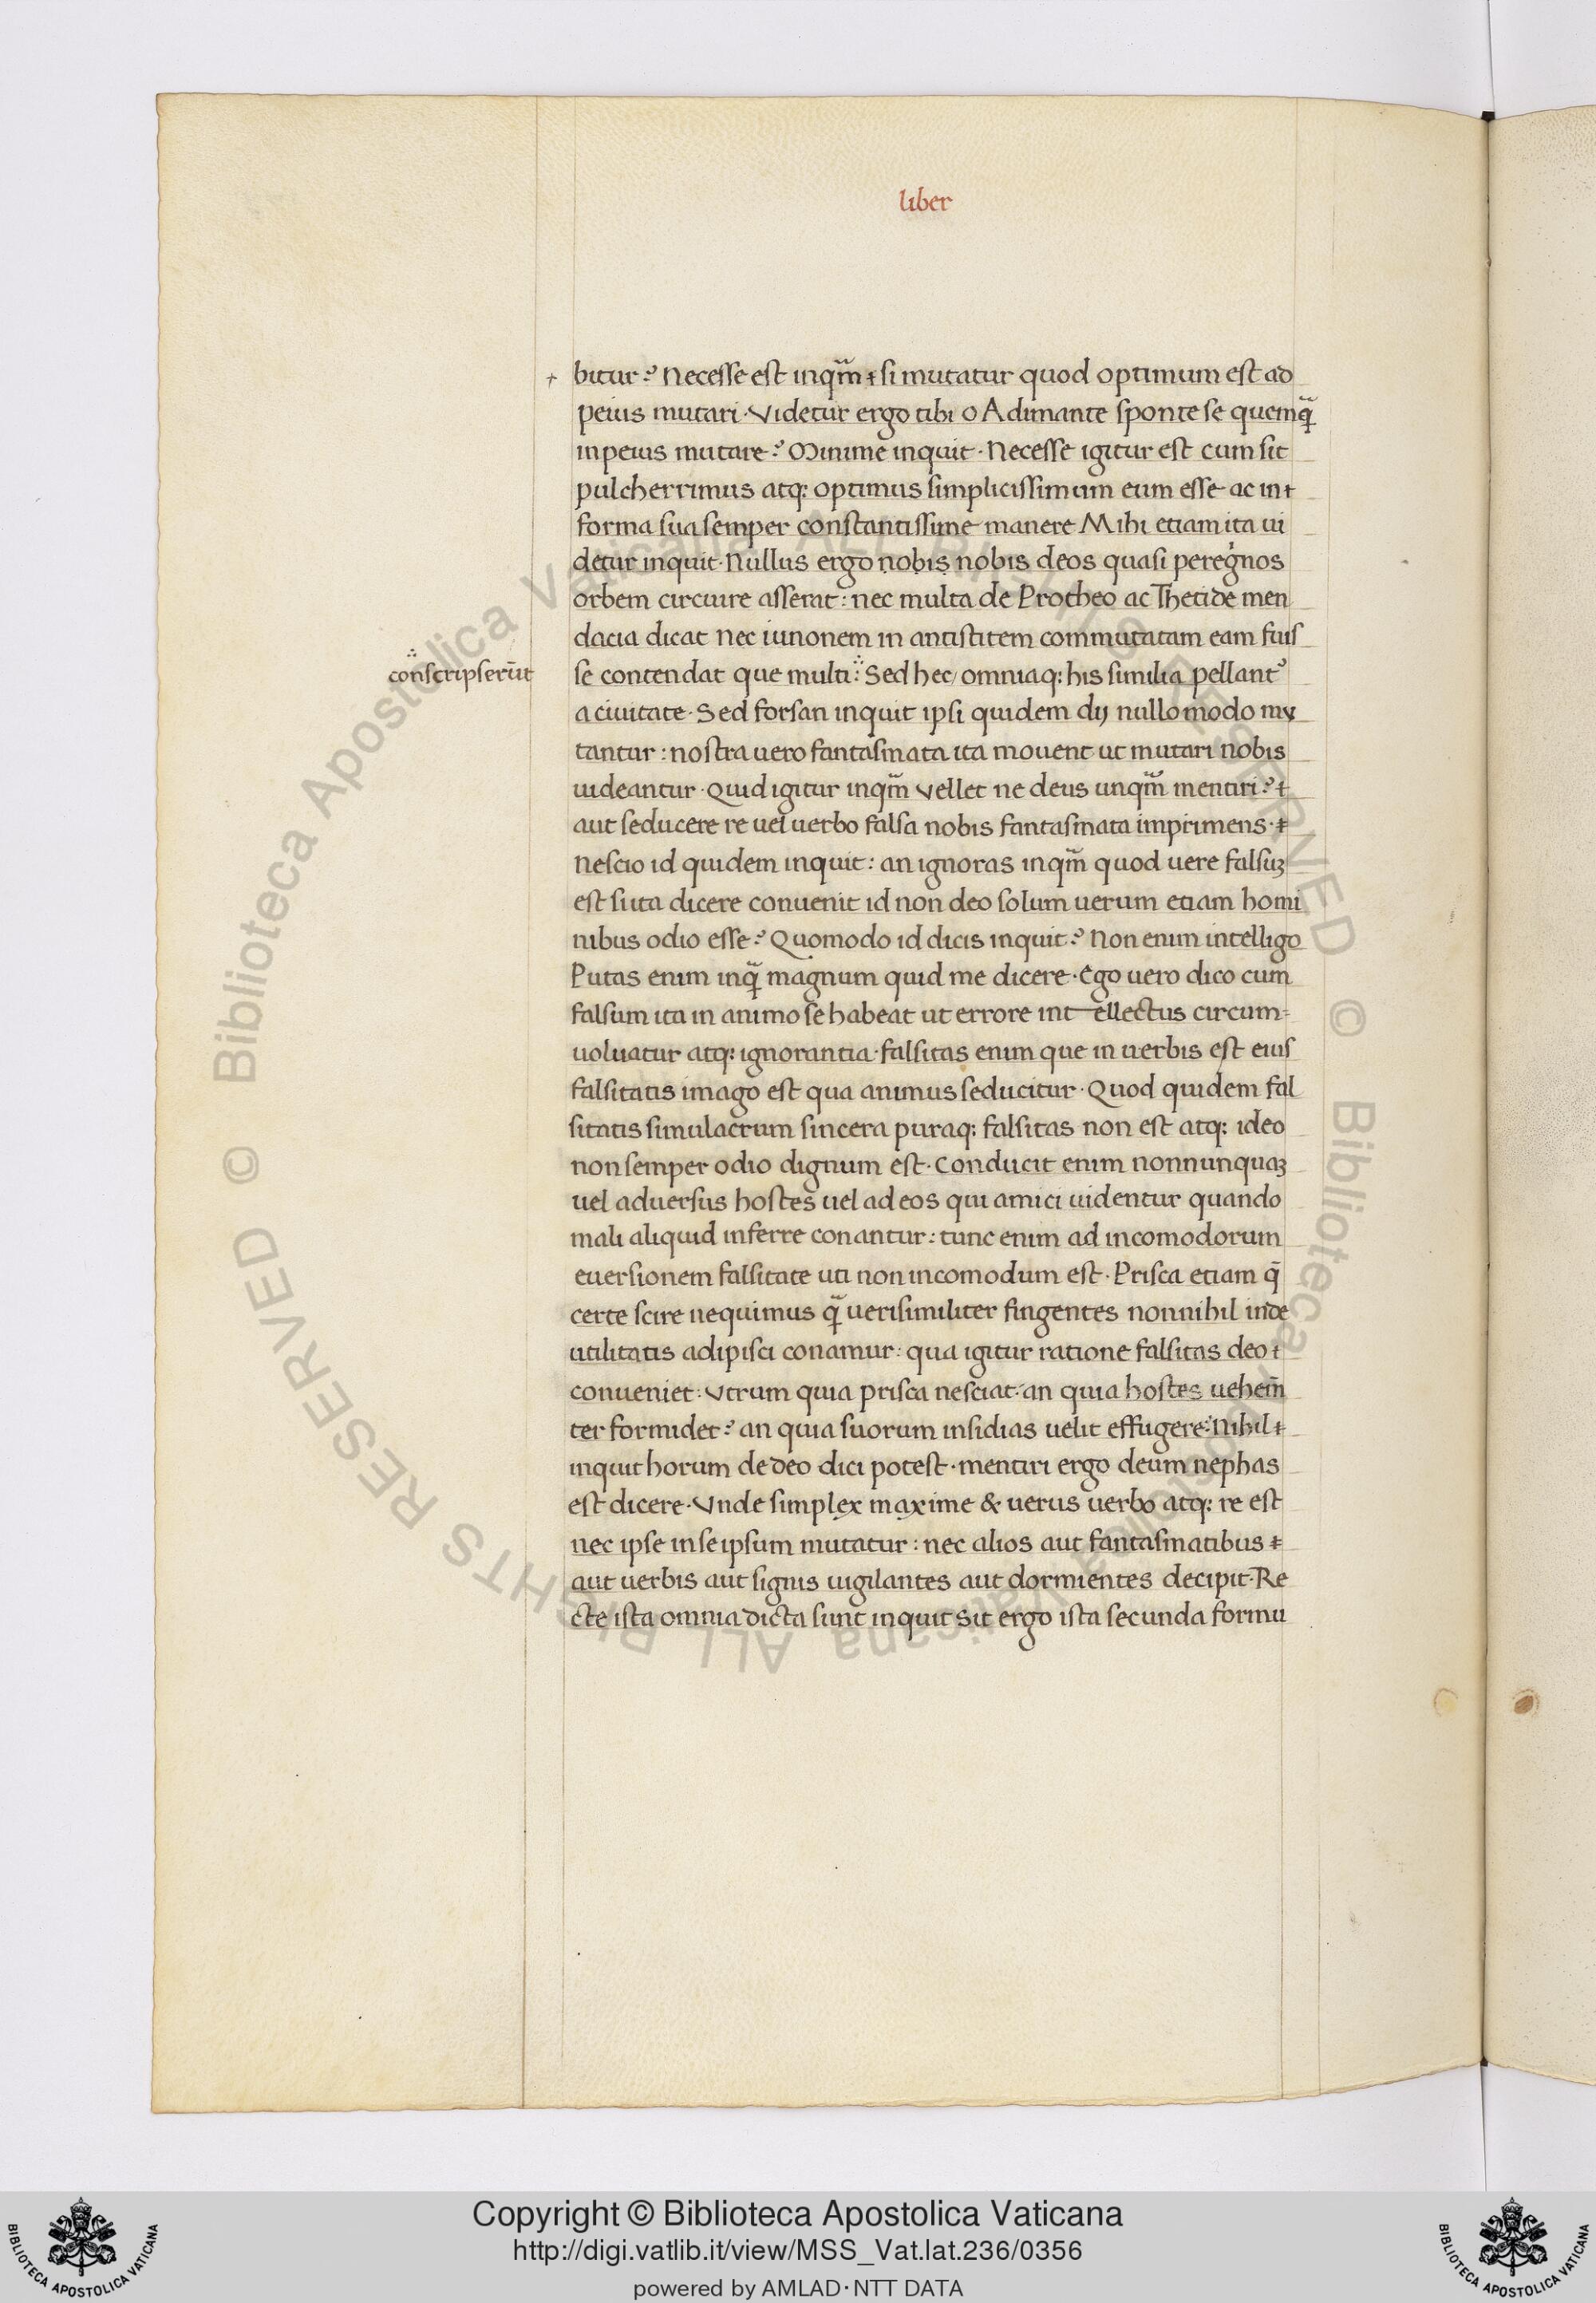 liber
bitur? Necesse est inqm̃ si mutatur quod optimum est ad
peius mutari · Videtur ergo tibi o Adimante sponte se quemq̃
in peius mutare? Minime inquit · Necesse igitur est cum sit
pulcherrimus atq: optimus simplicissimum eum esse ac in
forma sua semper constantissime manere Mihi etiam ita ui
detur inquit · Nullus ergo nobis nobis deos quasi peregͥnos
orbem circuire asserat: nec multa de Protheo ac Thetide men
dacia dicat nec iunonem in antistitem commutatam eam fuis
conscripserūt
se contendat que multi: Sed hec/ omniaq: his similia pellantᷣ
a ciuitate · Sed forsan inquit ipsi quidem dij nullo modo mu
tantur: nostra uero fantasmata ita mouent ut mutari nobis
uideantur · Quid igitur inqm̃ vellet ne deus unqm̃ mentiri?
aut seducere re uel uerbo falsa nobis fantasmata imprimens ·
Nescio id quidem inquit: an ignoras inqm̃ quod uere falsuꝫ
est si ita dicere conuenit id non deo solum uerum etiam homi
nibus odio esse? Quomodo id dicis inquit? Non enim intelligo
Putas enim inq̃ magnum quid me dicere · Ego uero dico cum
falsum ita in animo se habeat ut errore intellectus circum=
uoluatur atq: ignorantia · falsitas enim que in uerbis est eius
falsitatis imago est qua animus seducitur · Quod quidem fal
sitatis simulacrum sincera puraq: falsitas non est atq: ideo
non semper odio dignum est · Conducit enim nonnunquaꝫ
uel aduersus hostes uel ad eos qui amici uidentur quando
mali aliquid inferre conantur: tunc enim ad incomodorum
euersionem falsitate uti non incomodum est · Prisca etiam q̄
certe scire nequimus q̃ uerisimiliter fingentes nonnihil inde
utilitatis adipisci conamur: qua igitur ratione falsitas deo
conueniet: Vtrum quia prisca nesciat: an quia hostes uehem̄
ter formidet? an quia suorum insidias uelit effugere: Nihil
inquit horum de deo dici potest · mentiri ergo deum nephas
est dicere · Vnde simplex maxime & uerus uerbo atq: re est
nec ipse in se ipsum mutatur: nec alios aut fantasmatibus
aut uerbis aut signis uigilantes aut dormientes decipit · Re
cte ista omnia dicta sunt inquit Sit ergo ista secunda formu
© Biblioteca Apostolica Vaticana ALL RIGHTS RESERVED © Biblioteca Apostolica Vaticana ALL RIGHTS RESERVED
Copyright © Biblioteca Apostolica Vaticana
http://digi.vatlib.it/view/MSS_Vat.lat.236/0356
powered by AMLAD·NTT DATA
BIBLIOTECA APOSTOLICA VATICANA
BIBLIOTECA APOSTOLICA VATICANA